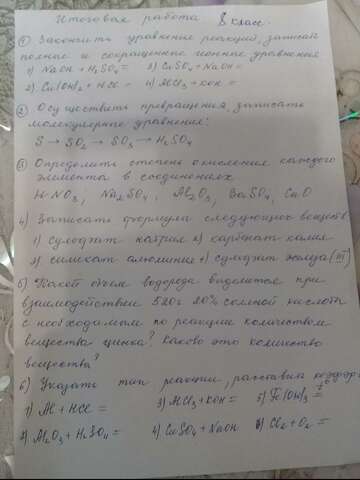 Итоговая работа 8 класс.
1) Закончить уравнение реакций, записать
полные и сокращенные ионные уравнения
1) NaOH + H2SO4 = 3) CuSO4 + NaOH =
2) Cu(OH)2 + HCl = 4) AlCl3 + KOH =
2) Осуществить превращения записать
молекулярные уравнения:
S → SO2 → SO3 → H2SO4
3) Определить степень окисления каждого
элемента в соединениях
HNO3, Na2SO4, Al2O3, BaSO4, CaO
4) Записать формулы следующих веществ
1) сульфат натрия 2) карбонат калия
3) силикат алюминия 4) сульфат железа (III)
5) Какой объем водорода выделится при
взаимодействие 520г 20% соляной кислоты
с необходимым по реакции количеством
вещества цинка? Каково это количество
вещества?
6) Указать тип реакции, расставив
1) Al + HCl = 3) AlCl3 + KOH = 5) Fe(OH)3 =
2) Al2O3 + H2SO4 = 4) CuSO4 + NaOH 6) Cl2 + O2 =